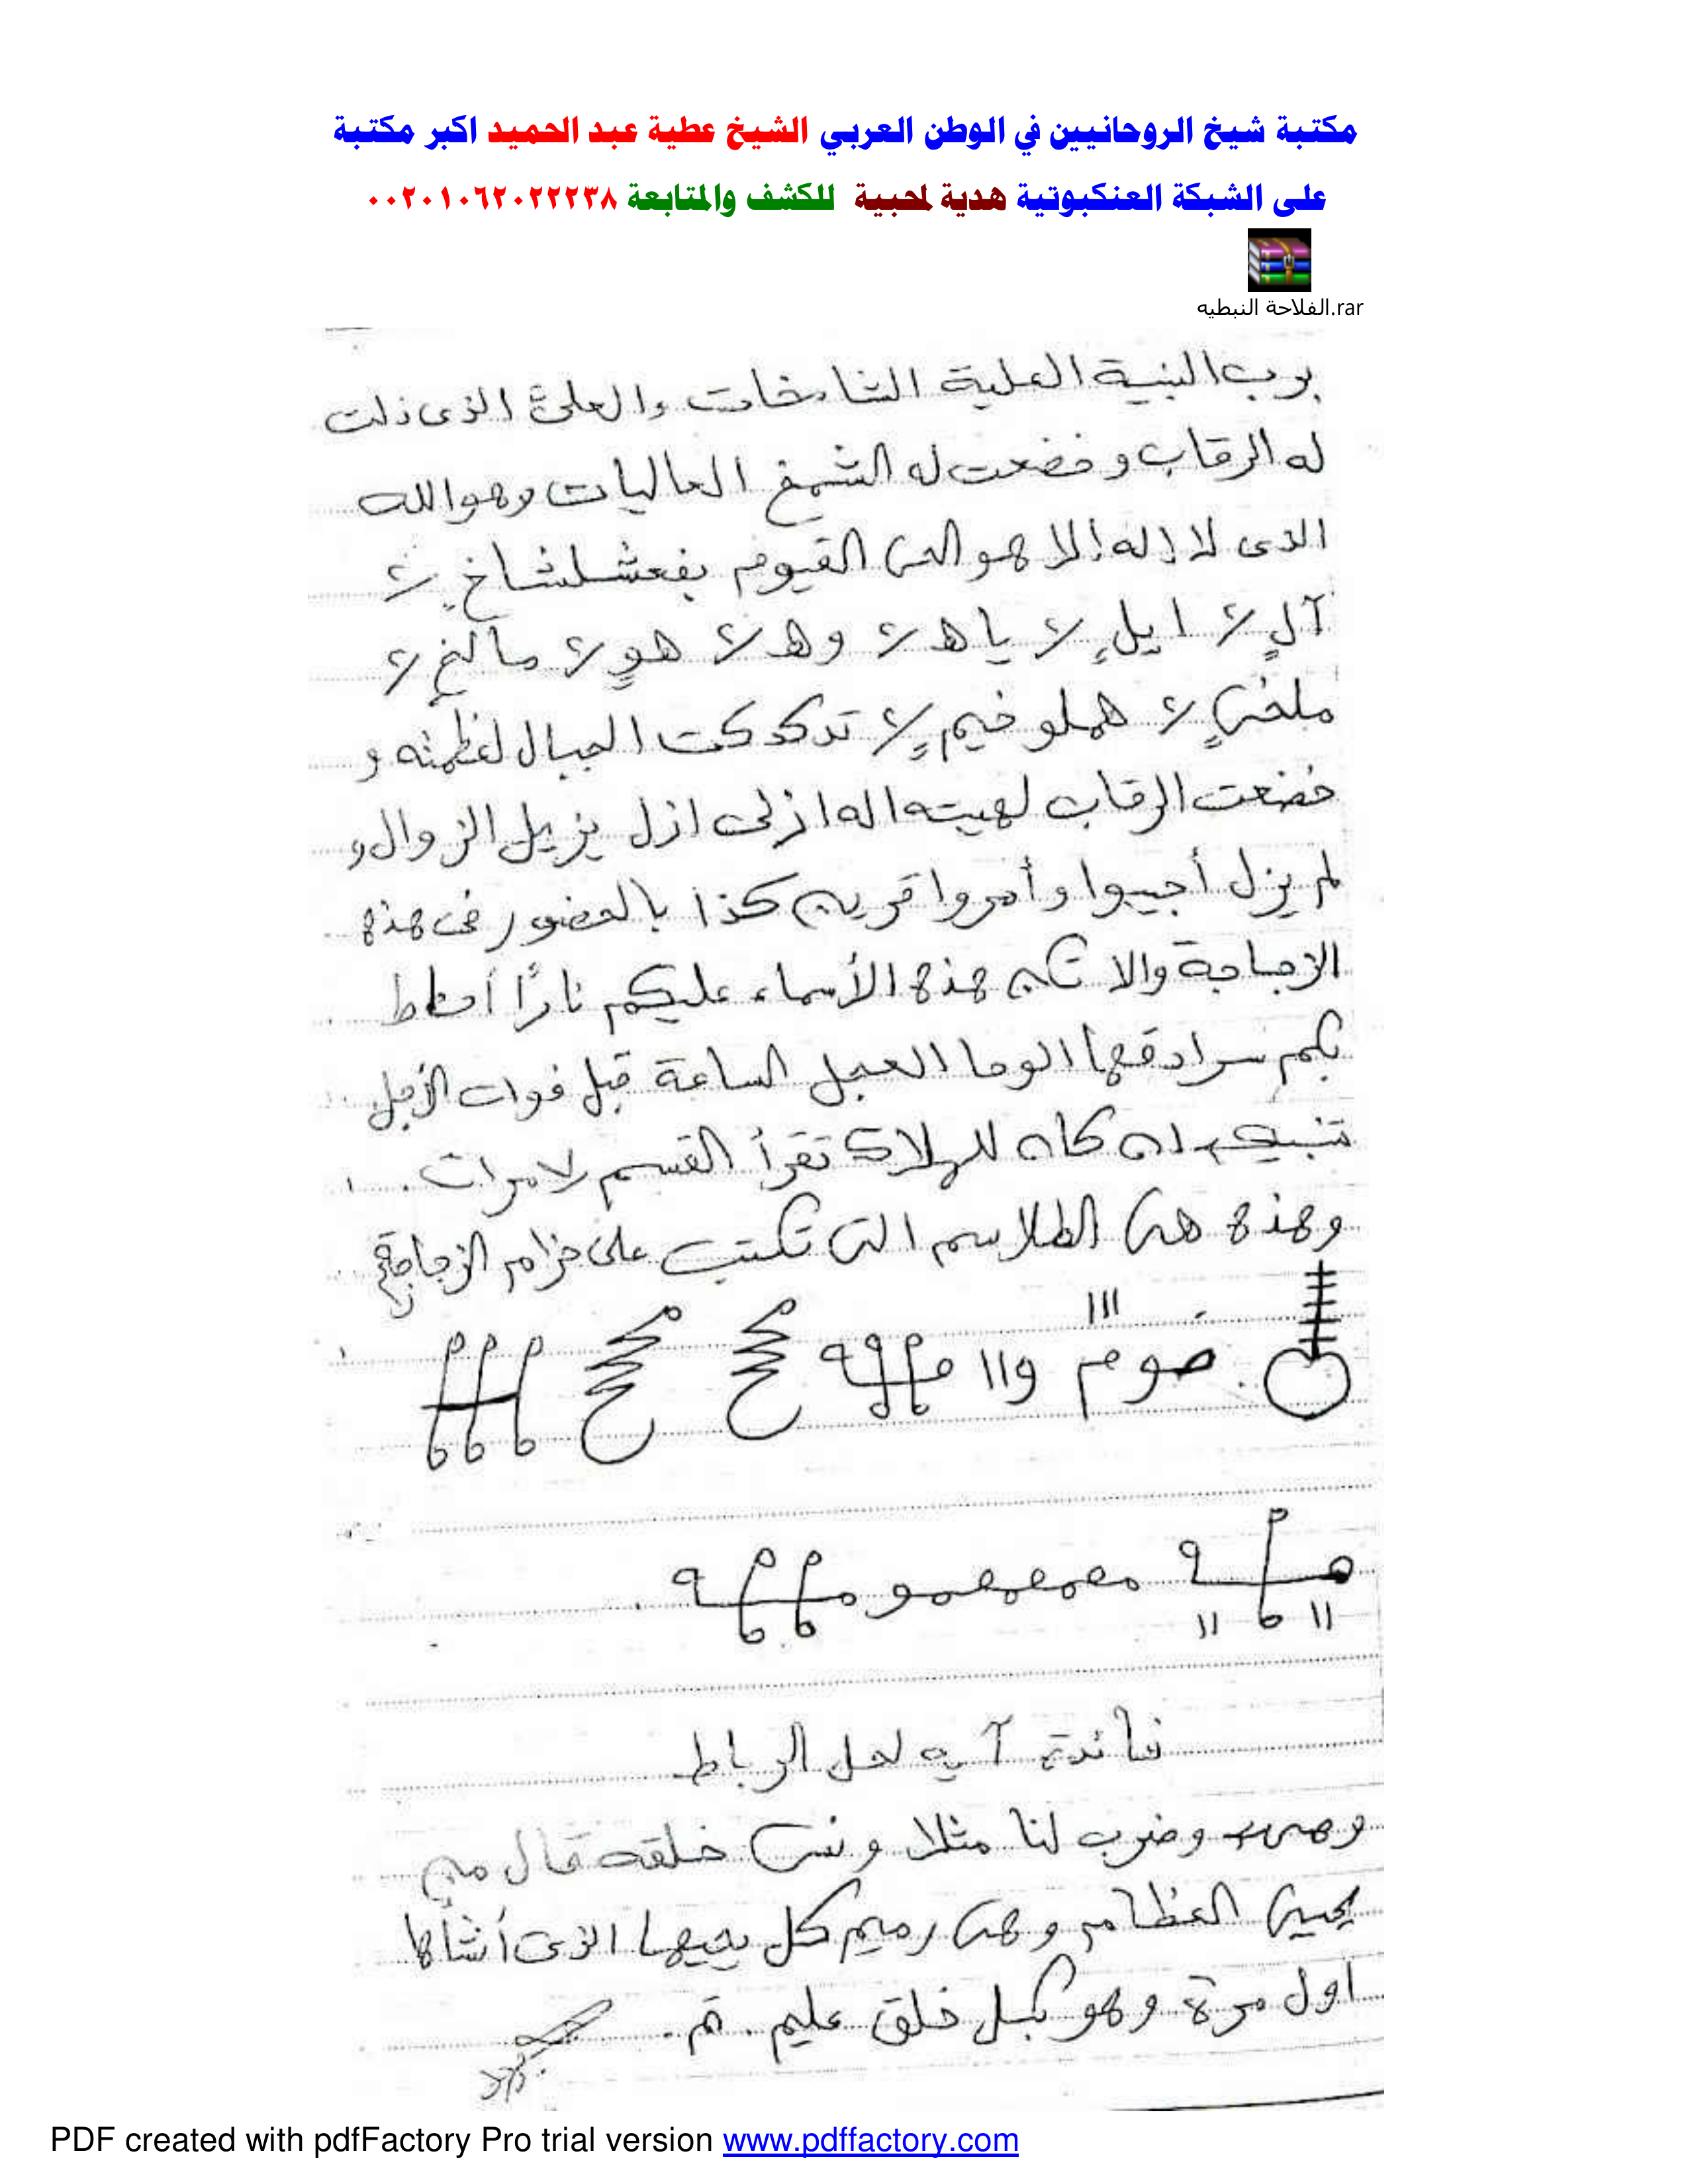 مكتبة شيخ الروحانيين في الوطن العربي الشيخ عطية عبد الحميد اكبر مكتبة
على الشبكة العنكبوتية هدية لمحبية للكشف والمتابعة ٠٠٢٠١٠٦٢٠٢٢٢٣٨
الفلاحة النبطيه.rar
برب البنية العلية الشامخات والعلى الذى ذلت
له الرقاب وخضعت له الشمخ العاليات وهو الله
الذى لا إله إلا هو الحى القيوم بفعشلشاخ ٢
آل ٢ ايل ٢ ياه ٢ وهـ ٢ هو ٢ مالخ ٢
ملخى ٢ هملوخيم ٢ تدكدكت الجبال لعظمته و
خضعت الرقاب لهيبته اله ازلى ازل يزيل الزوال و
لم يزل أجيبوا وأمروا قرين كذا بالحضور فى هذه
الزجاجة والا تكن هذه الأسماء عليكم نارًا أحاط
بكم سرادقها الوحا العجل الساعة قبل فوات الأجل
تنبيه ان كان للهلاك تقرأ القسم مرات
وهذه هى الطلاسم التى تكتب على حزام الزجاجة
فائدة آيه لحل الرباط
وهى وضرب لنا مثلا ونسى خلقه قال من
يحيى العظام وهى رميم كل يحييها الذى أنشأها
اول مرة وهو بكل خلق عليم. تم.
PDF created with pdfFactory Pro trial version www.pdffactory.com